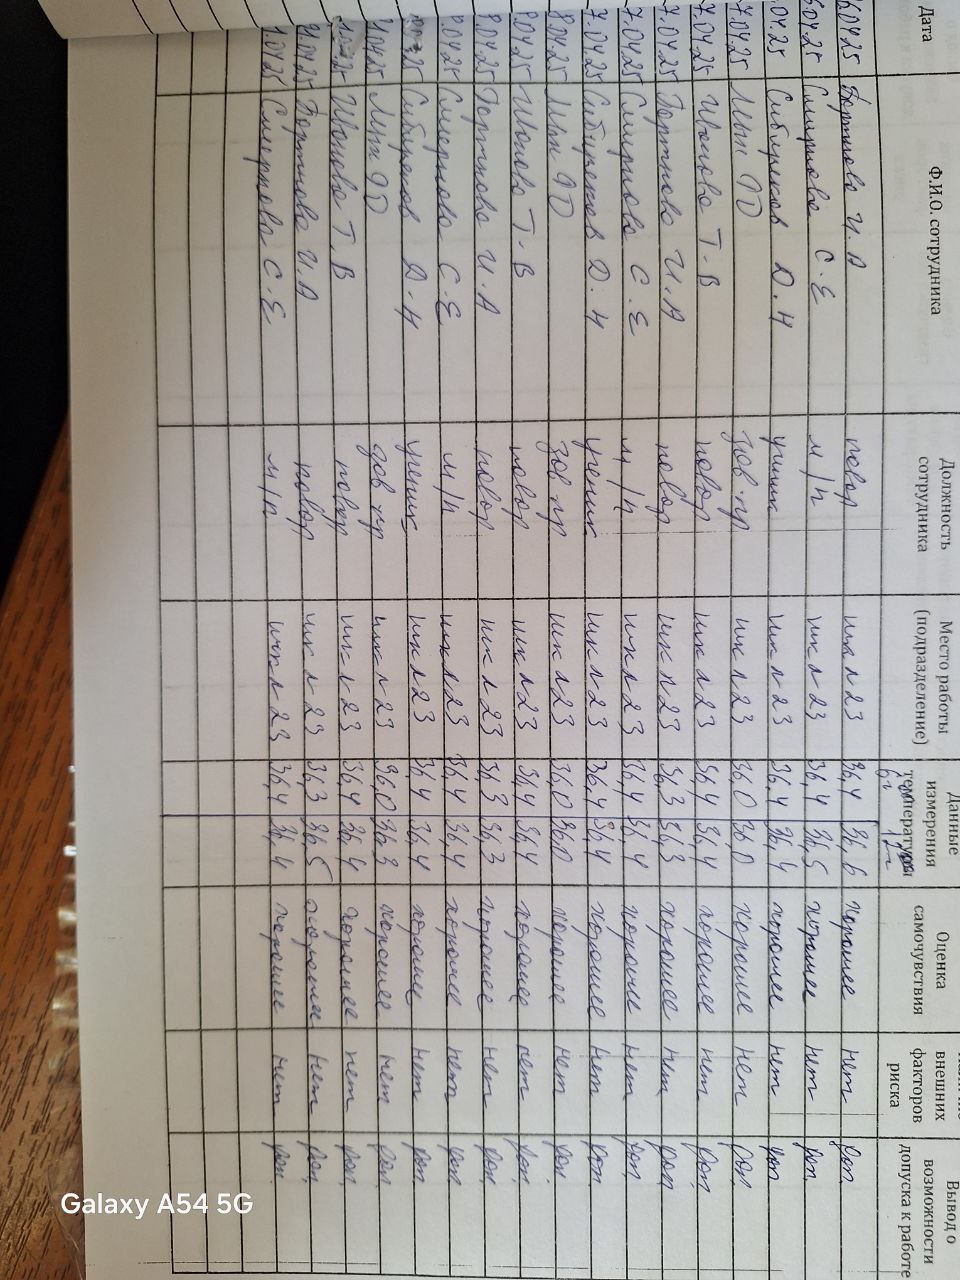 Дата Ф.И.О. сотрудника Должность сотрудника Место работы (подразделение) Данные измерения температуры Оценка самочувствия внешних факторов риска Вывод о возможности допуска к работе
6.04.25 И.А повар шк л 23 36,4 36,6 хорошее нет доп.
6.04.25 Смирнова С.Е м/п шк л 23 36,4 36,5 хорошее нет доп.
.04.25 Сибиряков Д.Н ученик шк л 23 36,4 36,4 хорошее нет доп
7.04.25 зав пр шк л 23 36,0 36,0 хорошее нет доп
7.04.25 Иванова Т.В повар шк л 23 36,4 36,4 хорошее нет доп
7.04.25 И.А повар шк л 23 36,3 36,3 хорошее нет доп
7.04.25 Смирнова С.Е м/п шк л 23 36,4 36,4 хорошее нет доп
7.04.25 Сибиряков Д.Н ученик шк л 23 36,4 36,4 хорошее нет доп
8.04.25 зав пр шк л 23 36,0 36,0 хорошее нет доп
8.04.25 Иванова Т.В повар шк л 23 36,4 36,4 хорошее нет доп.
8.04.25 И.А повар шк л 23 36,3 36,3 хорошее нет доп
8.04.25 Смирнова С.Е м/п шк л 23 36,4 36,4 хорошее нет доп
Сибиряков Д.Н ученик шк л 23 36,4 36,4 хорошее нет доп.
.04.25 зав пр шк л 23 36,0 36,3 хорошее нет доп.
Иванова Т.В повар шк л 23 36,4 36,4 хорошее нет доп.
.04.25 И.А повар шк л 23 36,3 36,5 хорошее нет доп.
.04.25 Смирнова С.Е м/п шк л 23 36,4 36,4 хорошее нет доп.
Galaxy A54 5G